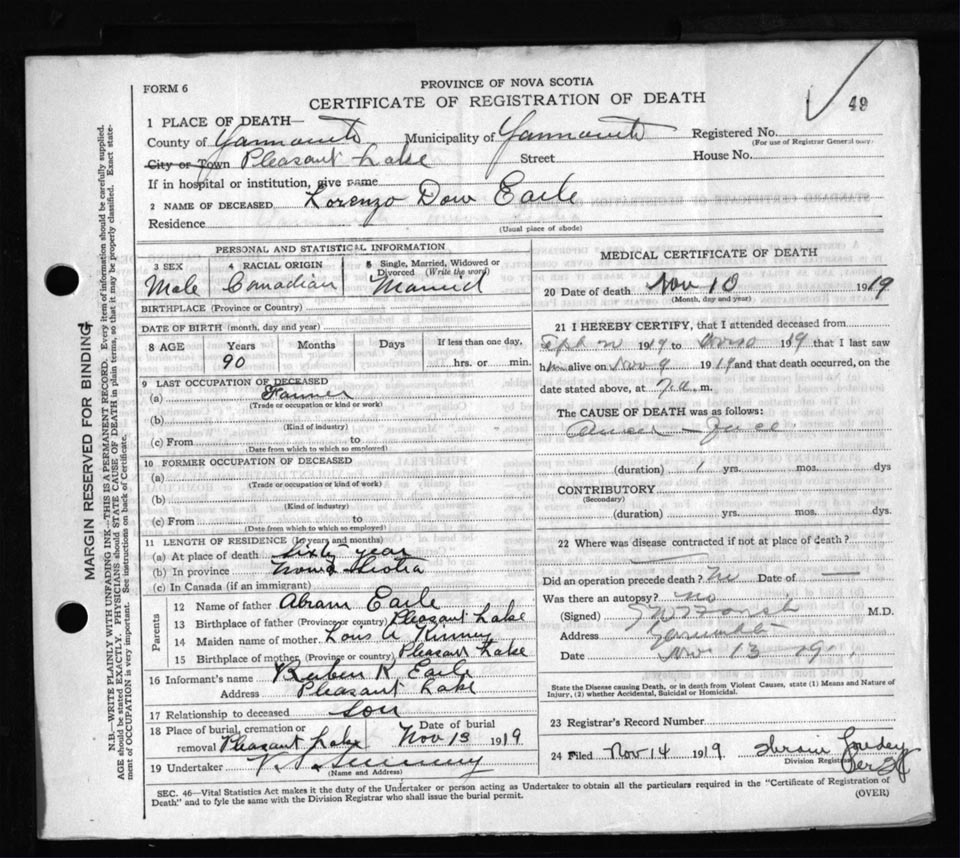 FORM 6
PROVINCE OF NOVA SCOTIA
CERTIFICATE OF REGISTRATION OF DEATH
49
1 PLACE OF DEATH—
County of Yarmouth Municipality of Yarmouth Registered No.
(For use of Registrar General only)
City or Town Pleasant Lake Street House No.
If in hospital or institution, give name
2 NAME OF DECEASED Lorenzo Dow Earle
Residence
(Usual place of abode)
PERSONAL AND STATISTICAL INFORMATION
3 SEX 4 RACIAL ORIGIN 5 Single, Married, Widowed or Divorced (Write the word)
Male Canadian Married
BIRTHPLACE (Province or Country)
DATE OF BIRTH (month, day and year)
8 AGE Years Months Days If less than one day,
90 hrs. or min.
9 LAST OCCUPATION OF DECEASED
(a) Farmer
(Trade or occupation or kind or work)
(b)
(Kind of industry)
(c) From to
(Date from which to which so employed)
10 FORMER OCCUPATION OF DECEASED
(a)
(Trade or occupation or kind of work)
(b)
(Kind of industry)
(c) From to
(Date from which to which so employed)
11 LENGTH OF RESIDENCE (In years and months)
(a) At place of death sixty year
(b) In province Nova Scotia
(c) In Canada (if an immigrant)
Parents
12 Name of father Abram Earle
13 Birthplace of father (Province or country) Pleasant Lake
14 Maiden name of mother Lois A Kinney
15 Birthplace of mother (Province or country) Pleasant Lake
16 Informant's name Ruben K. Earle
Address Pleasant Lake
17 Relationship to deceased son
18 Place of burial, cremation or removal Pleasant Lake Date of burial Nov 13 1919
19 Undertaker
(Name and Address)
MEDICAL CERTIFICATE OF DEATH
20 Date of death Nov 10 1919
(Month, day and year)
21 I HEREBY CERTIFY, that I attended deceased from
1919 to 1919 that I last saw
him alive on Nov 9 1919 and that death occurred, on the
date stated above, at 7 a. m.
The CAUSE OF DEATH was as follows:
Cancer – face
(duration) 1 yrs. mos. dys
CONTRIBUTORY
(Secondary)
(duration) yrs. mos. dys.
22 Where was disease contracted if not at place of death?
Did an operation precede death? No Date of —
Was there an autopsy? no
(Signed) M.D.
Address Yarmouth
Date Nov 13 19
State the Disease causing Death, or in death from Violent Causes, state (1) Means and Nature of
Injury, (2) whether Accidental, Suicidal or Homicidal.
23 Registrar's Record Number
24 Filed Nov 14 1919
Division Registrar
SEC. 46—Vital Statistics Act makes it the duty of the Undertaker or person acting as Undertaker to obtain all the particulars required in the "Certificate of Registration of
Death" and to fyle the same with the Division Registrar who shall issue the burial permit.
(OVER)
MARGIN RESERVED FOR BINDING
N.B.—WRITE PLAINLY WITH UNFADING INK—THIS IS A PERMANENT RECORD. Every item of information should be carefully supplied.
AGE should be stated EXACTLY. PHYSICIANS should STATE CAUSE OF DEATH in plain terms, so that it may be properly classified. Exact statement of OCCUPATION is very important. See instructions on back of Certificate.